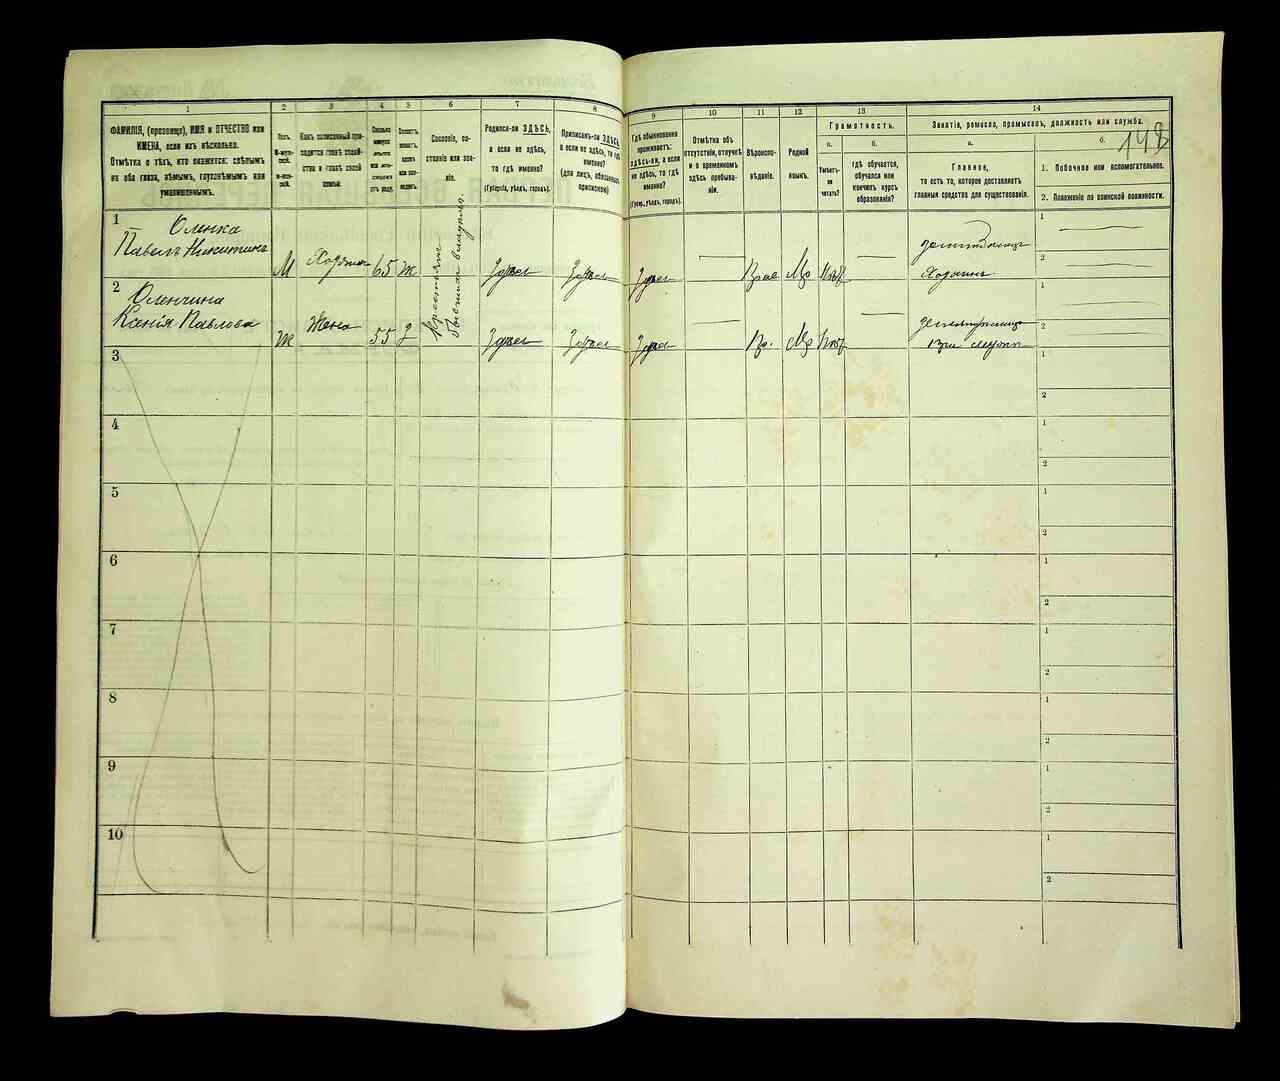 1
2
3
4
5
6
7
8
9
10
11
12
13
14
ФАМИЛІЯ, (прозвище), ИМЯ и ОТЧЕСТВО или
ИМЕНА, если ихъ нѣсколько.
Отмѣтка о тѣхъ, кто окажется: слѣпымъ
на оба глаза, нѣмымъ, глухонѣмымъ или
умалишеннымъ.
Полъ.
М-муж-
ской.
Ж-жен-
скій.
Сословіе, со-
стояніе или зва-
ніе.
Родился-ли ЗДѢСЬ,
а если не здѣсь,
то гдѣ именно?
(Губернія, уѣздъ, городъ).
Приписанъ-ли ЗДѢСЬ,
а если не здѣсь, то гдѣ
именно?
(для лицъ, обязанныхъ
припискою)
Гдѣ обыкновенно
проживаетъ:
здѣсь-ли, а если
не здѣсь, то гдѣ
именно?
(Губер., уѣздъ, городъ).
Отмѣтка объ
отсутствіи, отлучкѣ
и о временномъ
здѣсь пребыва-
ніи.
Вѣроиспо-
вѣданіе.
Родной
языкъ.
Грамотность.
а.
Умѣетъ-
ли
читать?
б.
гдѣ обучается,
обучался или
кончилъ курсъ
образованія?
Занятія, ремесло, промыселъ, должность или служба.
а.
Главное,
то есть то, которое доставляетъ
главныя средства для существованія.
б.
148
1. Побочное или вспомогательное.
2. Положеніе по воинской повинности.
1
Оленка
Павелъ Никитинъ
М
Хозяинъ
65
Ж
Здѣсь
Здѣсь
Здѣсь
Прав
Мр
Нѣт
Хозяинъ
1
2
2
Оленчина
Ксенія Павлова
Ж
Жена
55
З
Здѣсь
Здѣсь
Здѣсь
Пр.
Мр
Нѣт
при мужѣ
1
2
3
1
2
4
1
2
5
1
2
6
1
2
7
1
2
8
1
2
9
1
2
10
1
2